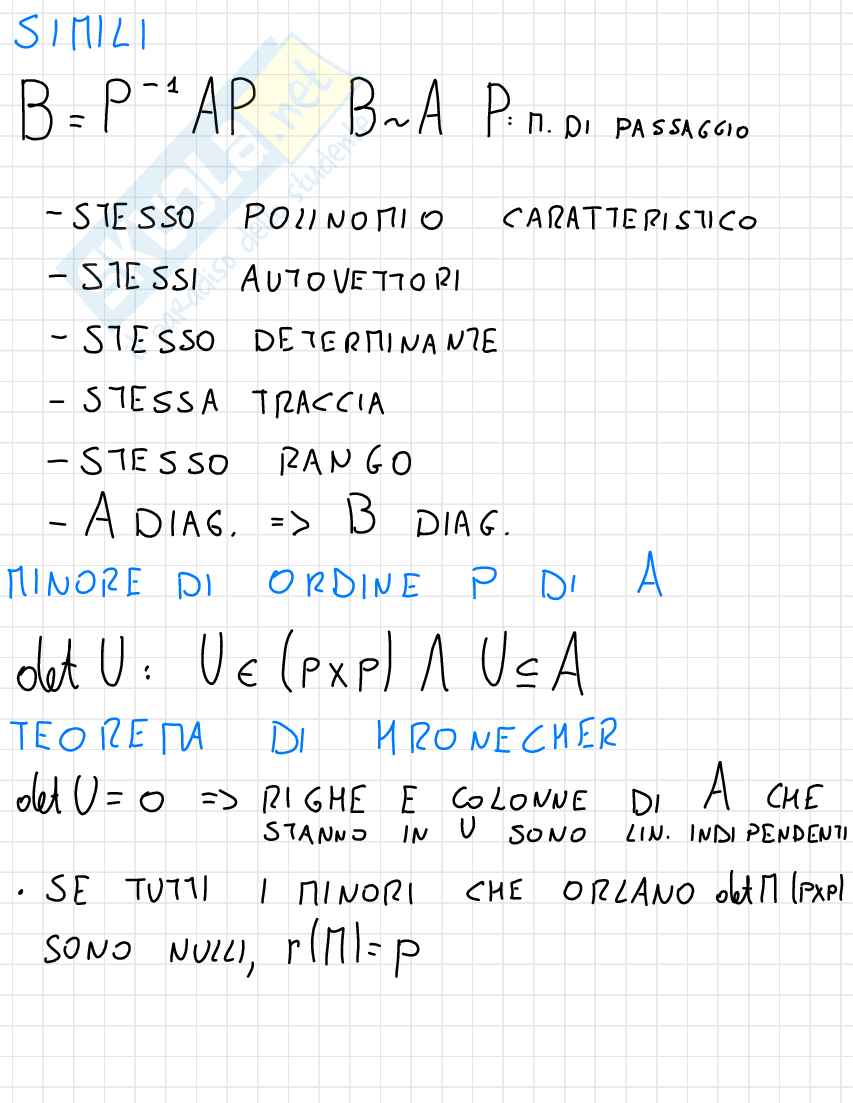 SIMILI
B = P⁻¹ AP B ~ A P: M. DI PASSAGGIO
- STESSO POLINOMIO CARATTERISTICO
- STESSI AUTOVETTORI
- STESSO DETERMINANTE
- STESSA TRACCIA
- STESSO RANGO
- A DIAG. => B DIAG.
MINORE DI ORDINE P DI A
det U: U ∈ (pxp) ∧ U ⊆ A
TEOREMA DI KRONECKER
det U = 0 => RIGHE E COLONNE DI A CHE
STANNO IN U SONO LIN. INDIPENDENTI
• SE TUTTI I MINORI CHE ORLANO det M (pxp)
SONO NULLI, r(M) = p
SKUOLA.net
paradiso dello studente